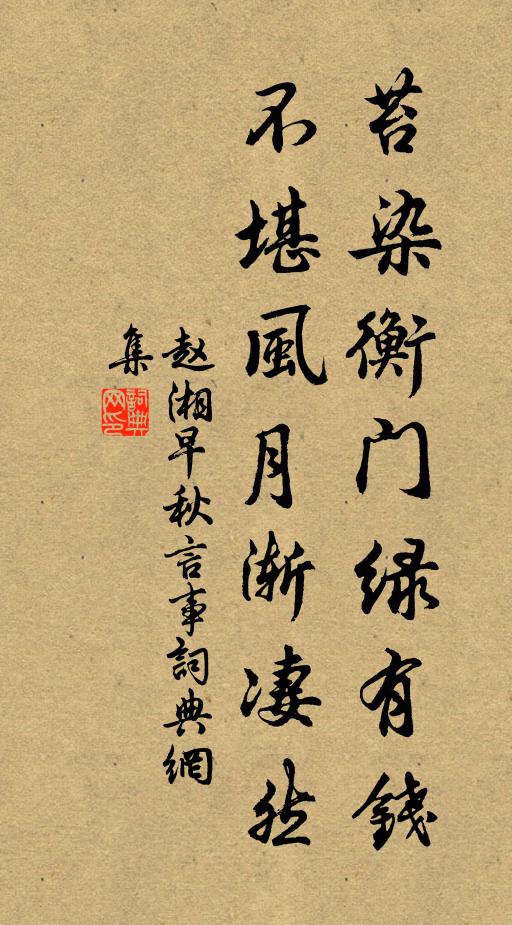 苔染衡门绿有錢
不堪風月漸凄然
赵湘早秋言事詞典網
集
詞典网印